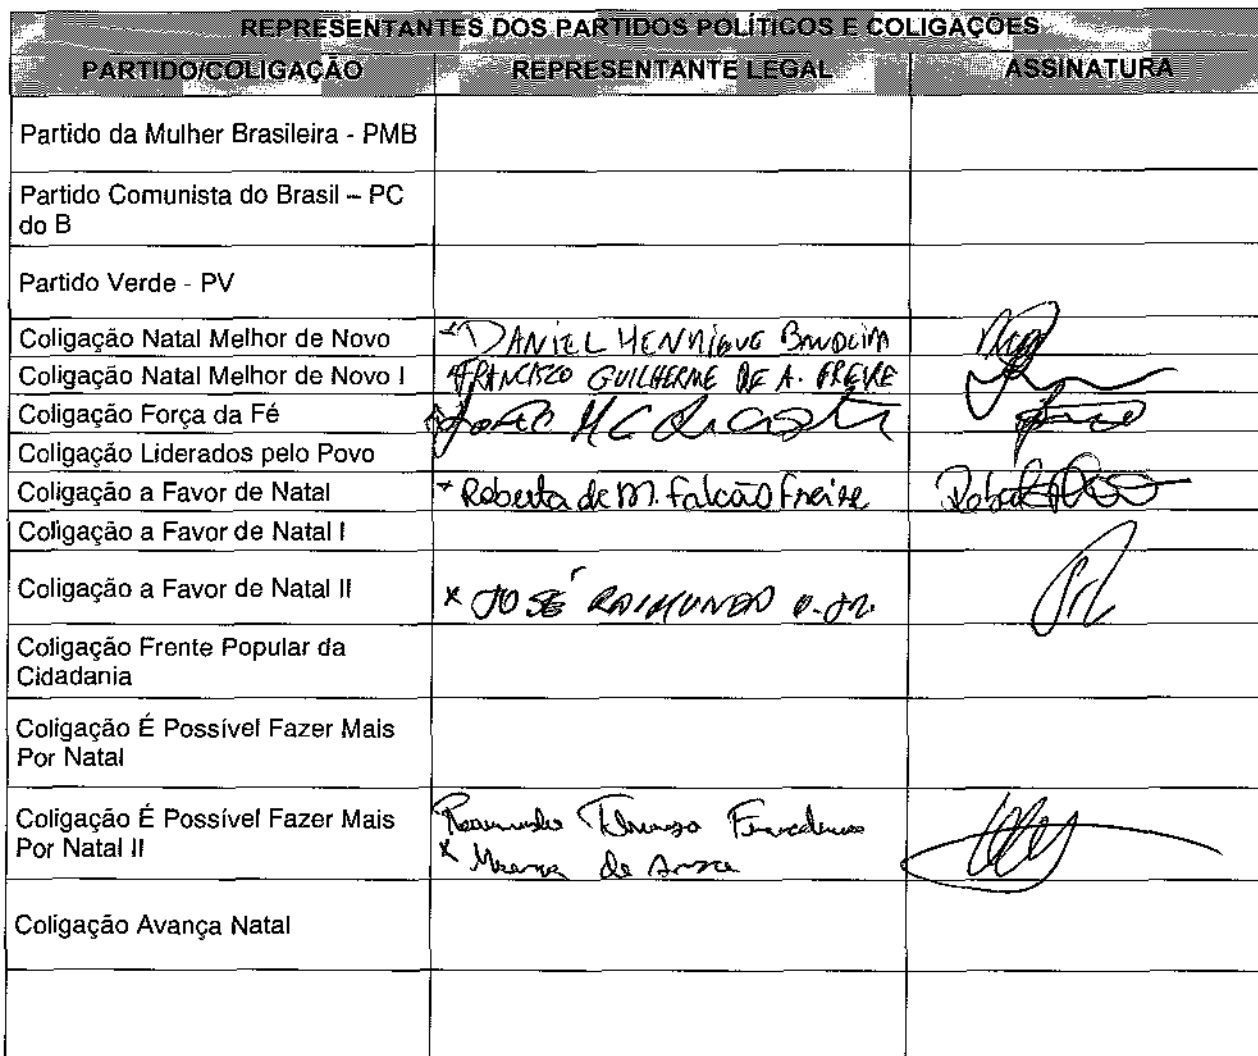 REPRESENTANTES DOS PARTIDOS POLÍTICOS E COLIGAÇÕES
PARTIDO/COLIGAÇÃO REPRESENTANTE LEGAL ASSINATURA
Partido da Mulher Brasileira - PMB
Partido Comunista do Brasil – PC
do B
Partido Verde - PV
Coligação Natal Melhor de Novo DANIEL HENRIQUE BANDEIRA
Coligação Natal Melhor de Novo I FRANCISCO GUILHERME DE A. FREIRE
Coligação Força da Fé
Coligação Liderados pelo Povo
Coligação a Favor de Natal Roberta de M. Falcão Freire
Coligação a Favor de Natal I
Coligação a Favor de Natal II x JOSÉ RAIMUNDO
Coligação Frente Popular da
Cidadania
Coligação É Possível Fazer Mais
Por Natal
Coligação É Possível Fazer Mais
Por Natal II
Coligação Avança Natal